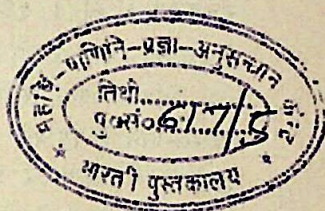 महर्षि-पाणिनि-प्रज्ञा-अनुसन्धान केन्द्र
तिथी..............
पु०सं०.617/5.........
* भारती पुस्तकालय *